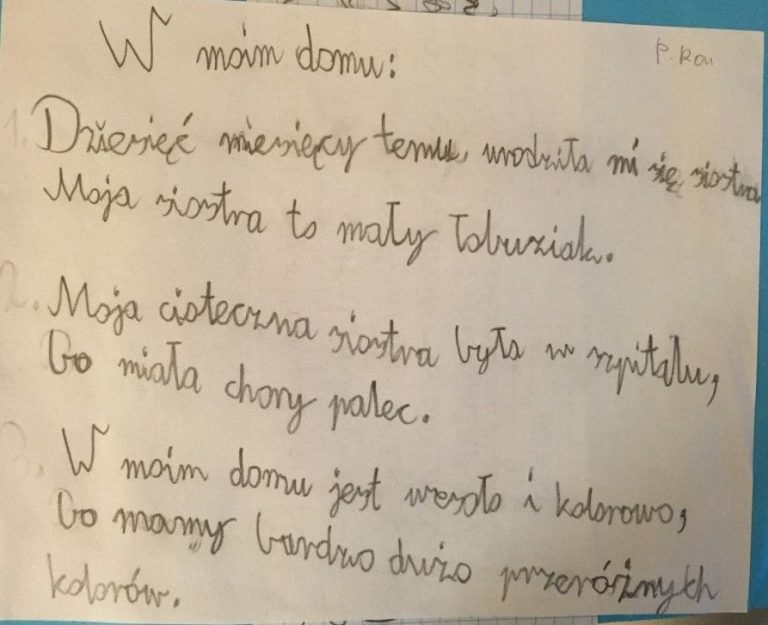 W moim domu:
P. Kou
1. Dziesięć miesięcy temu, urodziła mi się siostra
Moja siostra to mały łobuziak.
2. Moja cioteczna siostra była w szpitalu,
bo miała chory palec.
3. W moim domu jest wesoło i kolorowo,
bo mamy bardzo dużo przeróżnych
kolorów.